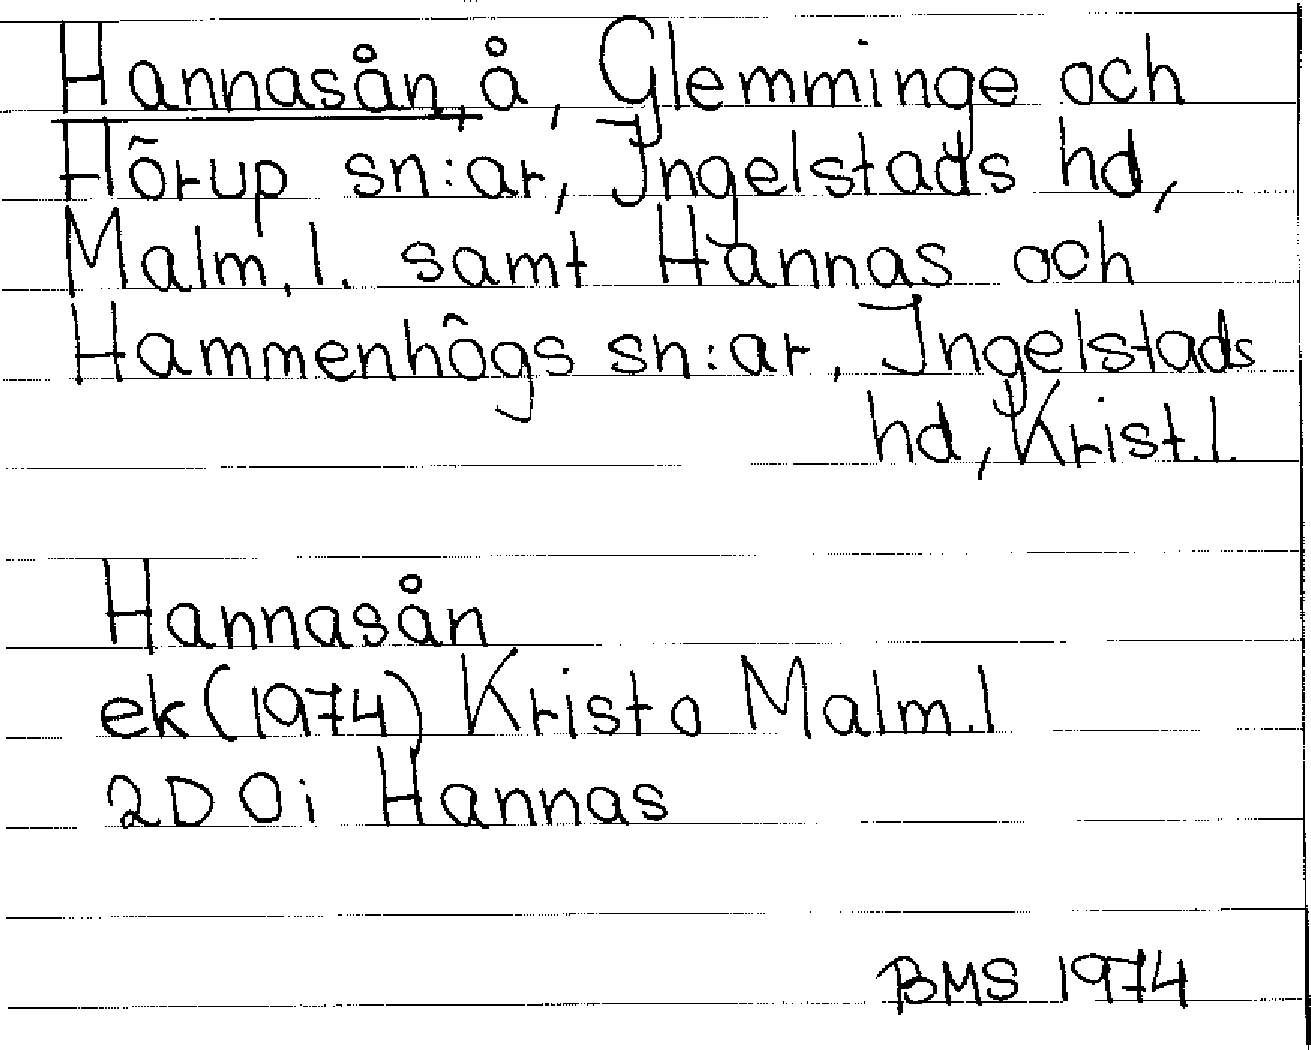 Hannasån, å, Glemminge och
Hörup sn:ar, Ingelstads hd,
Malm. l. samt Hannas och
Hammenhögs sn:ar, Ingelstads
hd, Krist. l.
Hannasån
ek (1974) Krist o Malm. l
2D 0i Hannas
BMS 1974